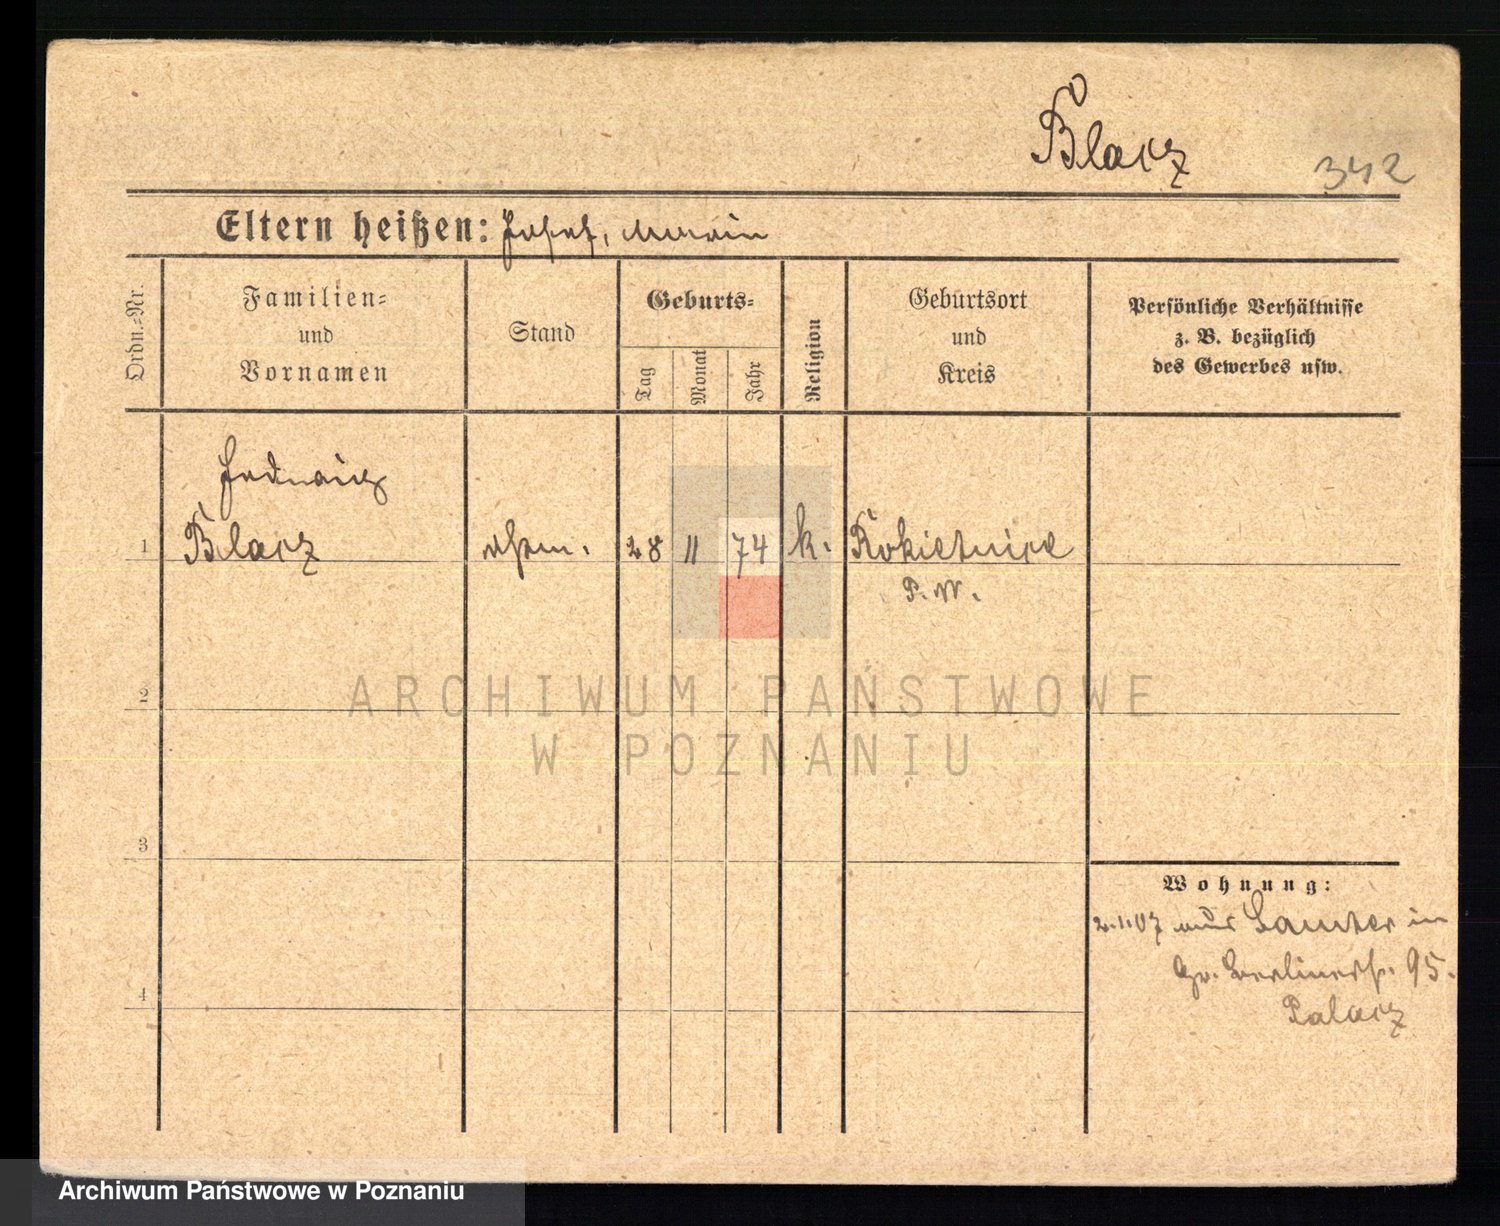 Blacz
342
Eltern heißen: Josef, Maria
Ordn.-Nr.
Familien-
und
Vornamen
Stand
Geburts-
Tag
Monat
Jahr
Religion
Geburtsort
und
Kreis
Persönliche Verhältnisse
z. B. bezüglich
des Gewerbes usw.
1
Blacz
28 11 74 k. Rokietnice
P. W.
2
3
4
Wohnung:
2.1.07 aus in
Gr. Berlinerstr. 95.
Palacz
ARCHIWUM PAŃSTWOWE
W POZNANIU
Archiwum Państwowe w Poznaniu